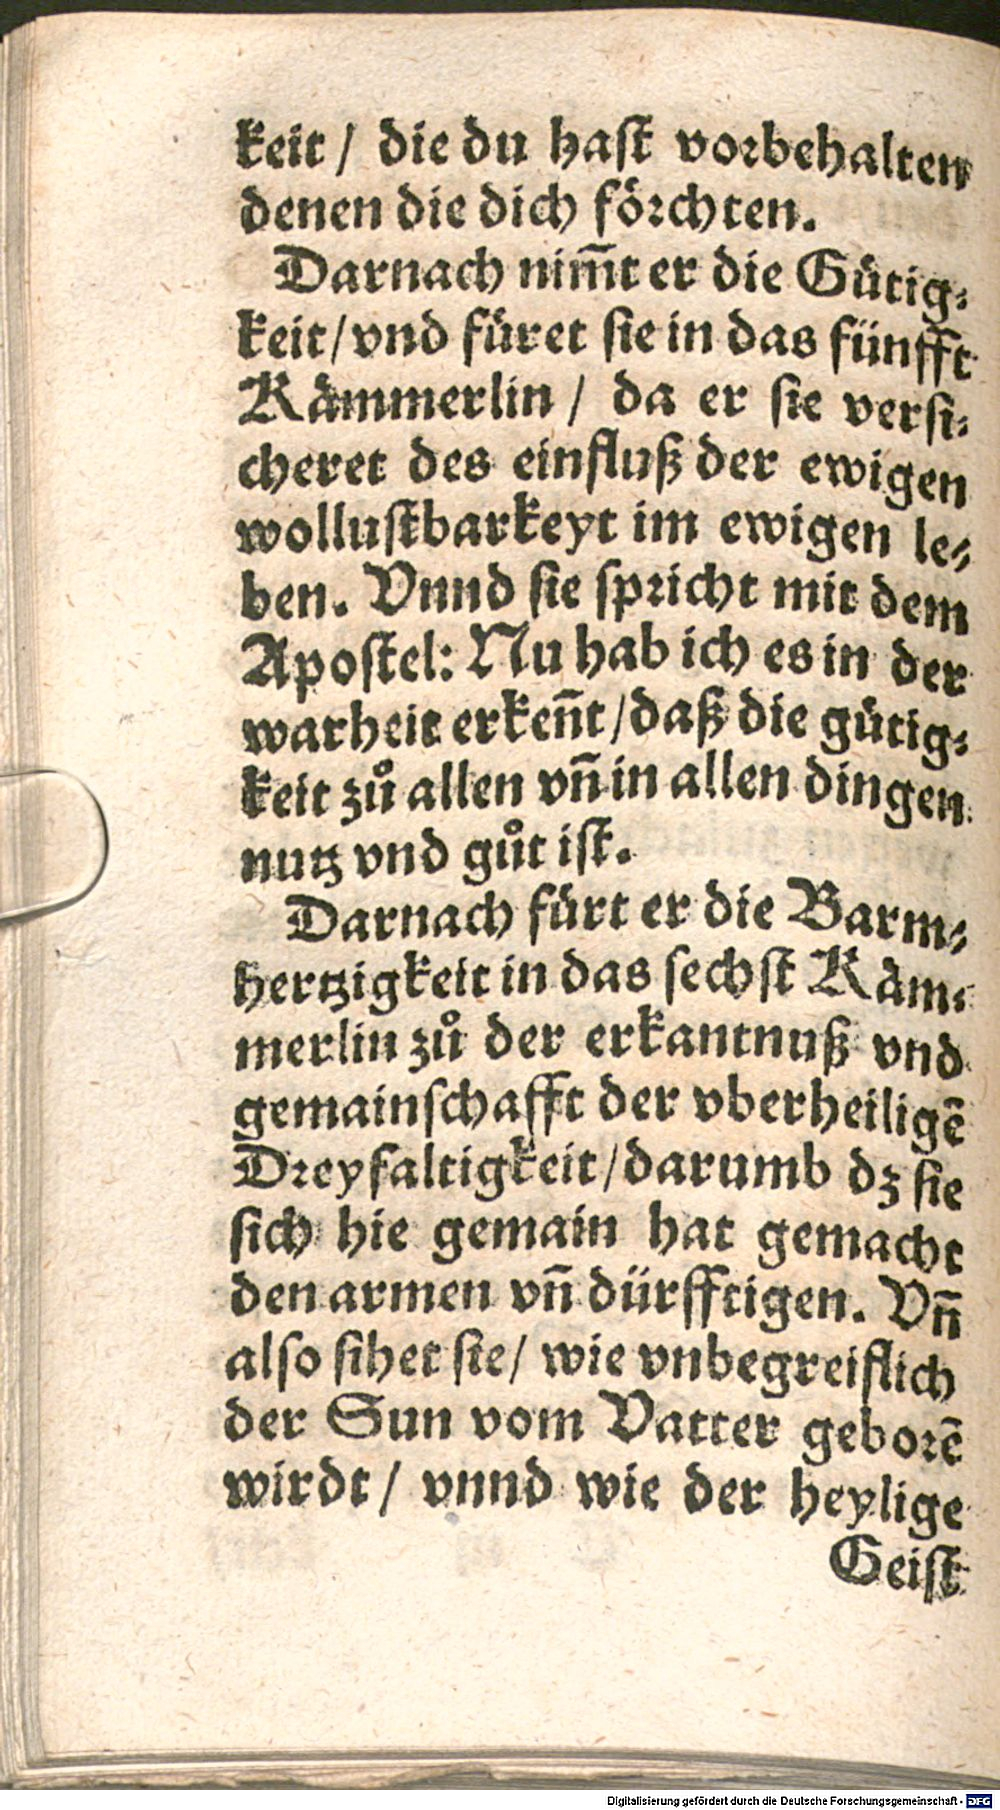 keit / die du haſt vorbehalten
denen die dich förchten.
Darnach nim̃t er die Gütig⸗
keit/vnd füret ſie in das fünfft
Kämmerlin / da er ſie verſi⸗
cheret des einfluß der ewigen
wolluſtbarkeyt im ewigen le⸗
ben. Vnnd ſie ſpricht mit dem
Apoſtel: Nu hab ich es in der
warheit erkeñt/daß die gütig⸗
keit zů allen vñ in allen dingen
nutz vnd gůt iſt.
Darnach fürt er die Barm⸗
hertzigkeit in das ſechſt Käm⸗
merlin zů der erkantnuß vnd
gemainſchafft der vberheiligẽ
Dreyfaltigkeit/darumb dz ſie
ſich hie gemain hat gemacht
den armen vñ dürfftigen. Vñ
alſo ſihet ſie/ wie vnbegreiflich
der Sun vom Vatter geborẽ
wirdt / vnnd wie der heylige
Geiſt
Digitalisierung gefördert durch die Deutsche Forschungsgemeinschaft - DFG